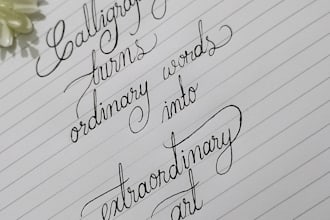 Calligraphy
turns
ordinary words
into
extraordinary
art